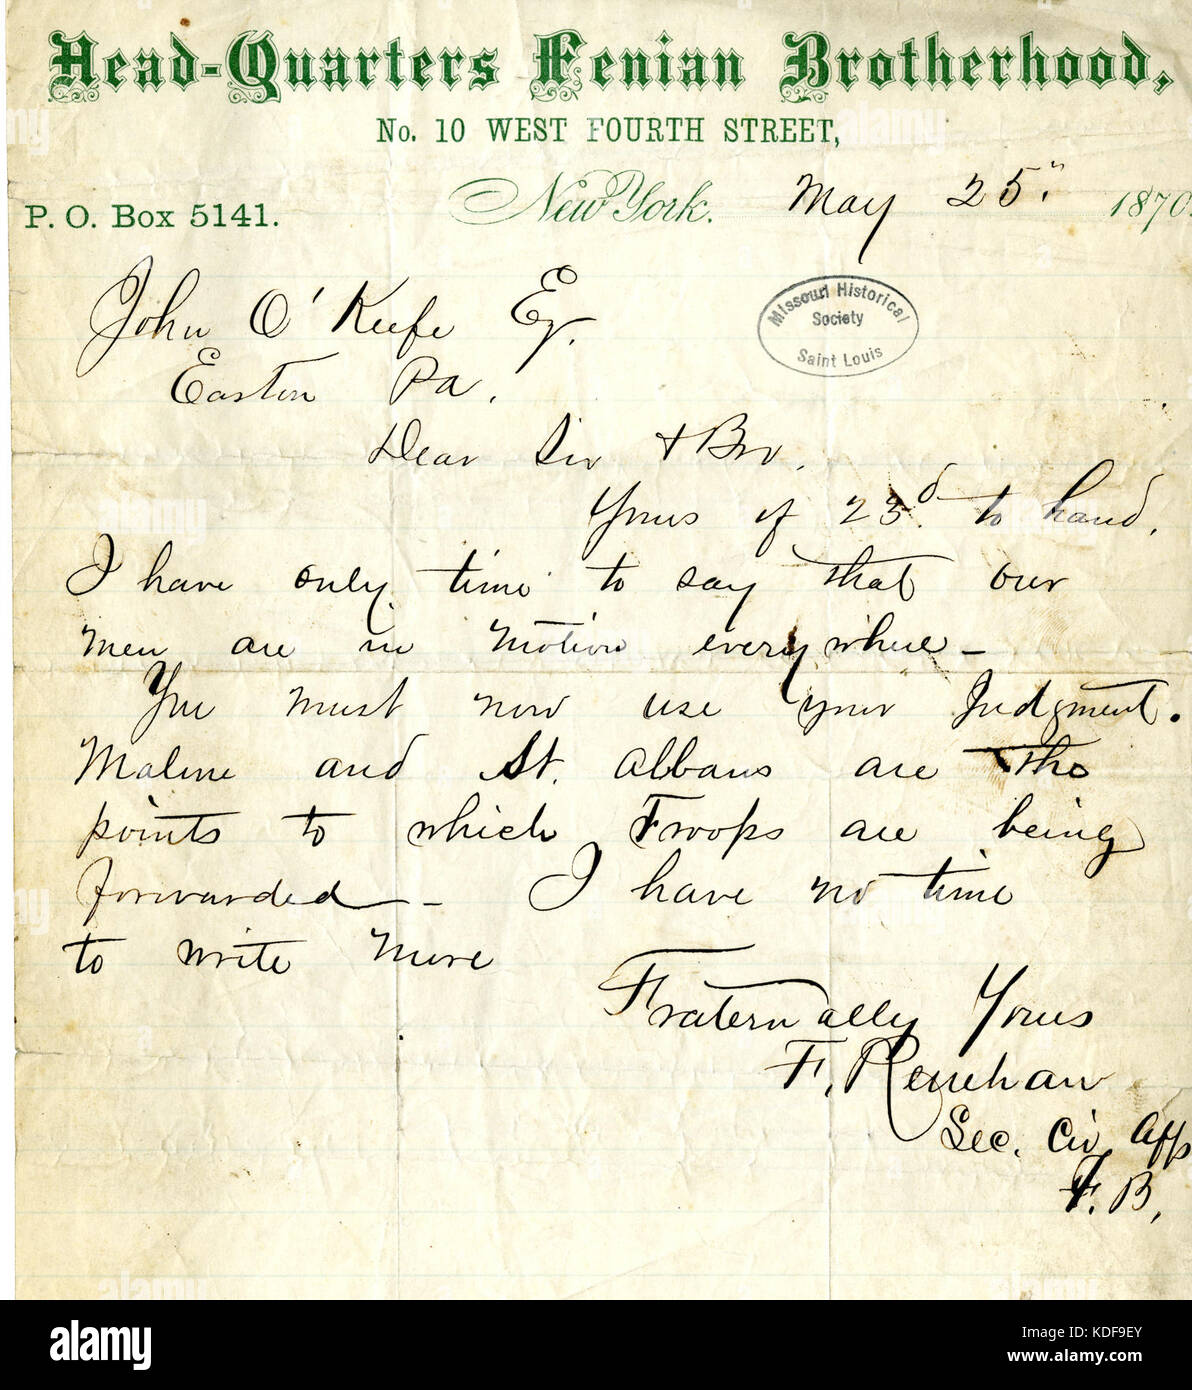 Head-Quarters Fenian Brotherhood,
No. 10 WEST FOURTH STREET,
P. O. Box 5141. New York. May 25" 1870.
John O'Keefe Eq.
Missouri Historical
Society
Saint Louis
Easton Pa.
Dear Sir & Bro.
Yours of 23d. to hand.
I have only time to say that our
men are in motion everywhere –
You must now use your Judgment.
Malone and St. Albans are the
points to which Troops are being
forwarded – I have no time
to write more
Fraternally Yours
F. Renehan
Sec. Civ Affs
F. B.
alamy
Image ID: KDF9EY
www.alamy.com